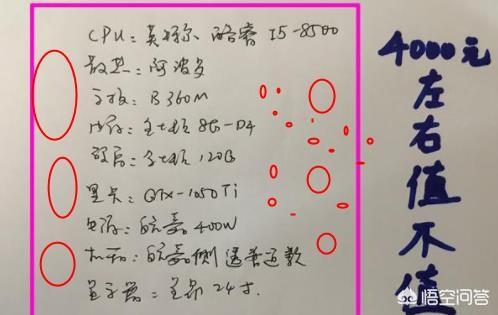 CPU：英特尔 酷睿 I5-8500
散热：阿波罗
主板：B360M
内存：金士顿 8G-D4
硬盘：金士顿 120G
显卡：GTX-1050Ti
电源：航嘉 400W
机箱：航嘉侧透普通款
显示器：24寸.
4000元左右值不值
悟空问答